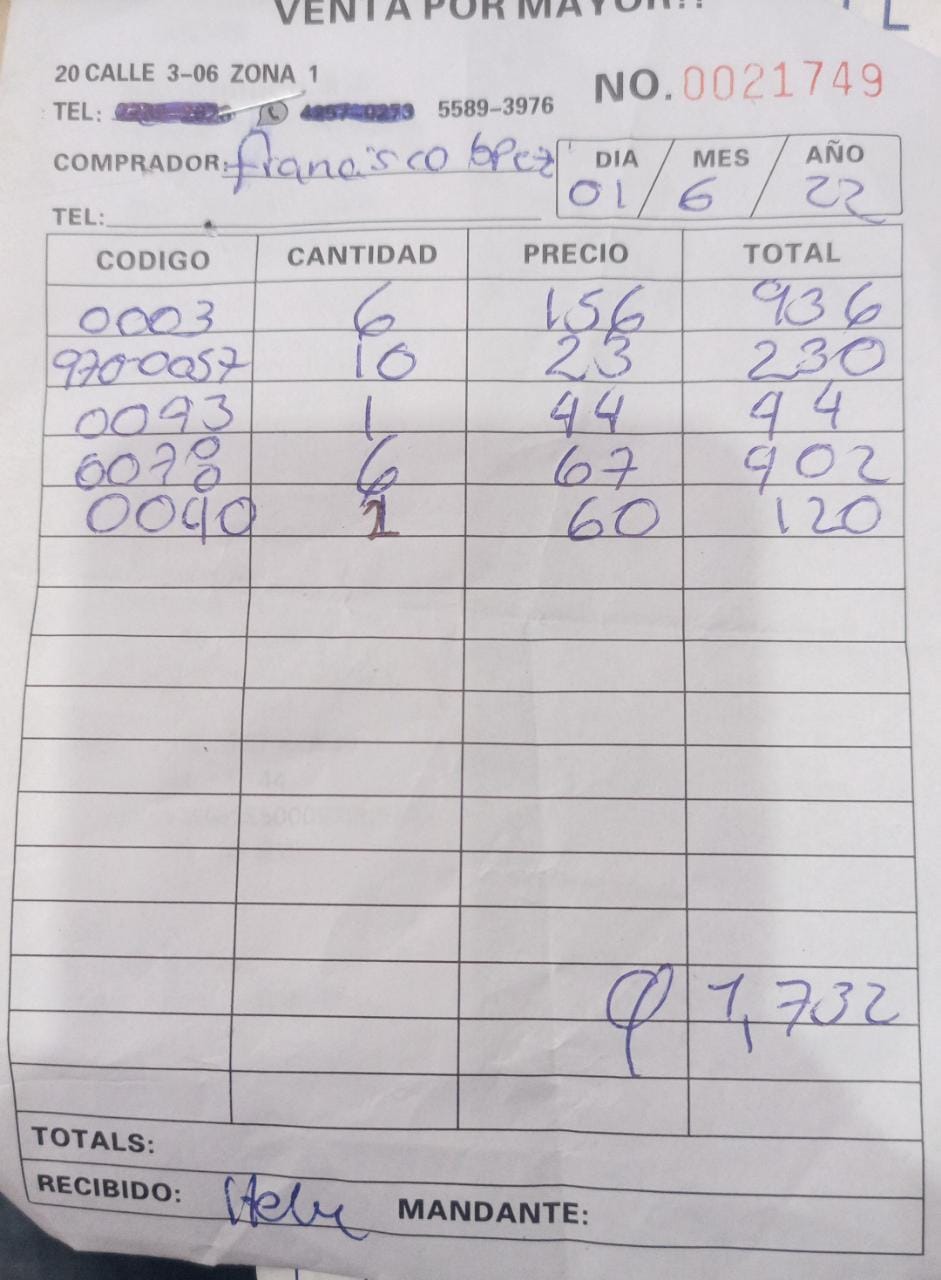 VENTA POR MAYOR!!
20 CALLE 3-06 ZONA 1
NO. 0021749
TEL: 5589-3976
COMPRADOR: francisco lopez
DIA MES AÑO
01 6 22
TEL:
CODIGO CANTIDAD PRECIO TOTAL
0003 6 156 936
970-0057 10 23 230
0093 1 44 44
0078 6 67 402
0040 1 60 120
Q 1,732
TOTALS:
RECIBIDO: MANDANTE: